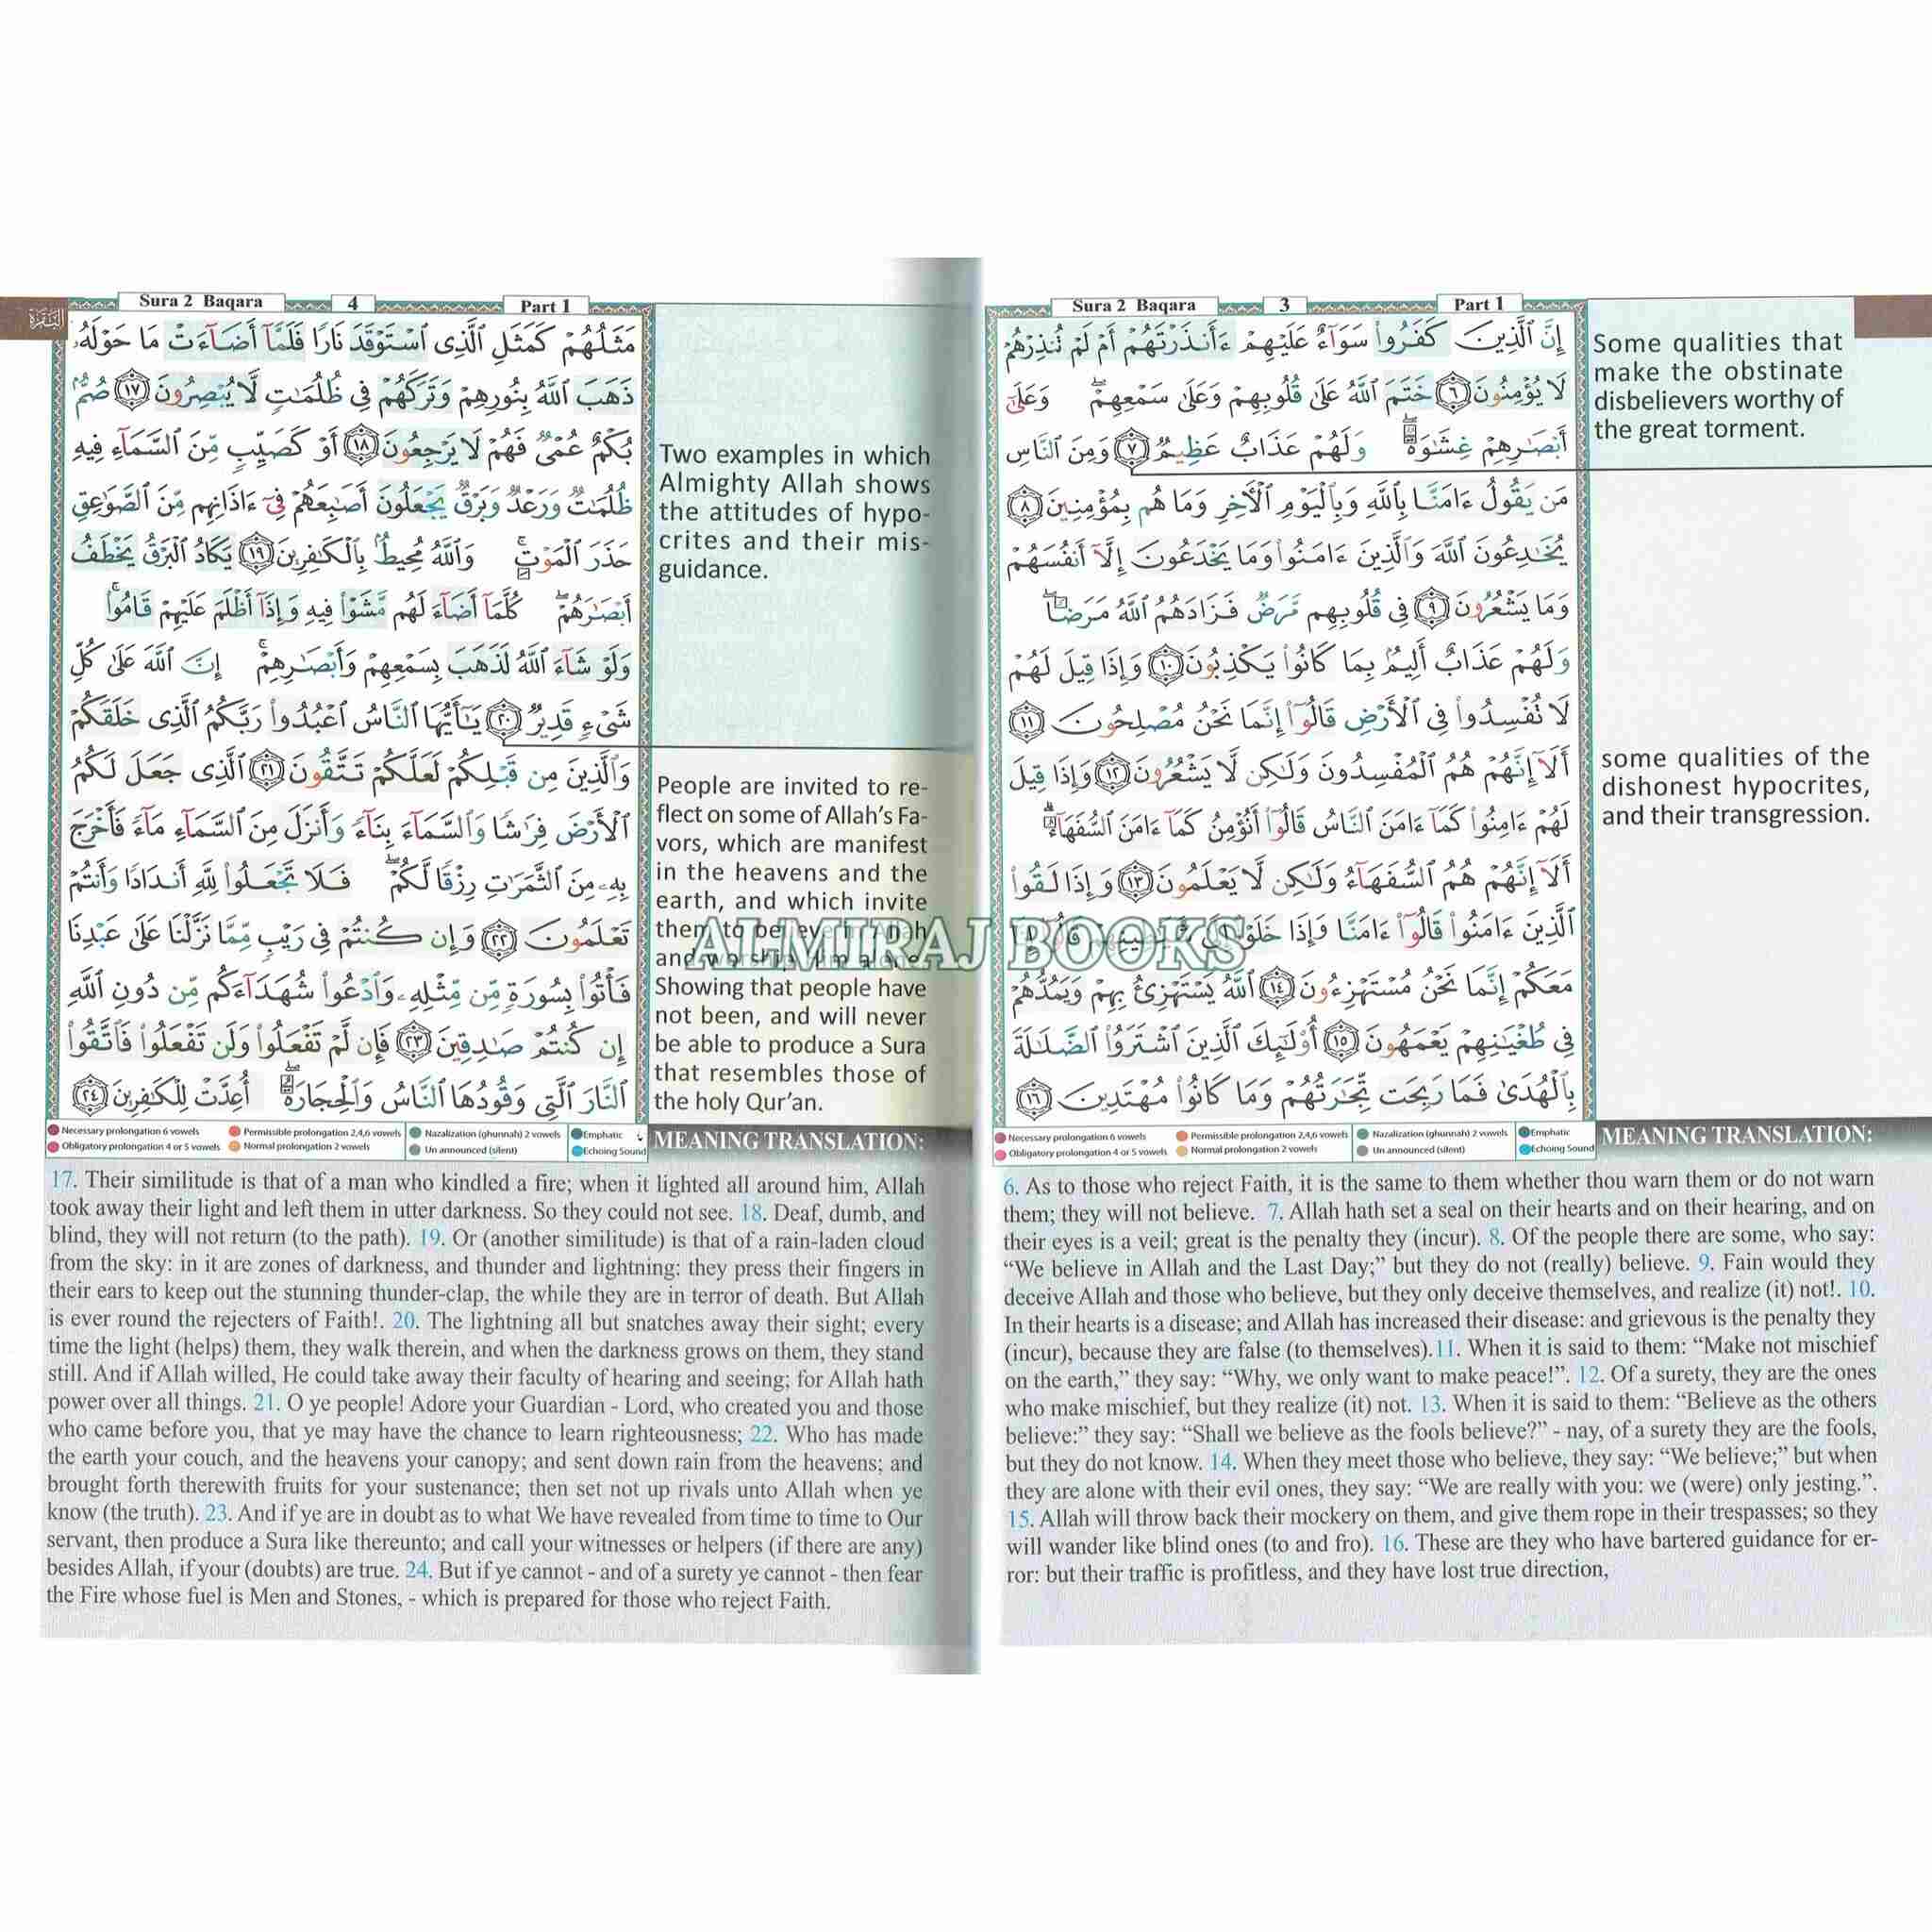 Sura 2 Baqara
3
Part 1
إِنَّ ٱلَّذِينَ كَفَرُوا۟ سَوَآءٌ عَلَيْهِمْ ءَأَنذَرْتَهُمْ أَمْ لَمْ تُنذِرْهُمْ
لَا يُؤْمِنُونَ ٦ خَتَمَ ٱللَّهُ عَلَىٰ قُلُوبِهِمْ وَعَلَىٰ سَمْعِهِمْ ۖ وَعَلَىٰٓ
أَبْصَٰرِهِمْ غِشَٰوَةٌ ۖ وَلَهُمْ عَذَابٌ عَظِيمٌ ٧ وَمِنَ ٱلنَّاسِ
مَن يَقُولُ ءَامَنَّا بِٱللَّهِ وَبِٱلْيَوْمِ ٱلْءَاخِرِ وَمَا هُم بِمُؤْمِنِينَ ٨
يُخَٰدِعُونَ ٱللَّهَ وَٱلَّذِينَ ءَامَنُوا۟ وَمَا يَخْدَعُونَ إِلَّآ أَنفُسَهُمْ
وَمَا يَشْعُرُونَ ٩ فِى قُلُوبِهِم مَّرَضٌ فَزَادَهُمُ ٱللَّهُ مَرَضًا ۖ
وَلَهُمْ عَذَابٌ أَلِيمٌۢ بِمَا كَانُوا۟ يَكْذِبُونَ ١٠ وَإِذَا قِيلَ لَهُمْ
لَا تُفْسِدُوا۟ فِى ٱلْأَرْضِ قَالُوٓا۟ إِنَّمَا نَحْنُ مُصْلِحُونَ ١١
أَلَآ إِنَّهُمْ هُمُ ٱلْمُفْسِدُونَ وَلَٰكِن لَّا يَشْعُرُونَ ١٢ وَإِذَا قِيلَ
لَهُمْ ءَامِنُوا۟ كَمَآ ءَامَنَ ٱلنَّاسُ قَالُوٓا۟ أَنُؤْمِنُ كَمَآ ءَامَنَ ٱلسُّفَهَآءُ ۗ
أَلَآ إِنَّهُمْ هُمُ ٱلسُّفَهَآءُ وَلَٰكِن لَّا يَعْلَمُونَ ١٣ وَإِذَا لَقُوا۟
ٱلَّذِينَ ءَامَنُوا۟ قَالُوٓا۟ ءَامَنَّا وَإِذَا خَلَوْا۟ إِلَىٰ شَيَٰطِينِهِمْ قَالُوٓا۟ إِنَّا
مَعَكُمْ إِنَّمَا نَحْنُ مُسْتَهْزِءُونَ ١٤ ٱللَّهُ يَسْتَهْزِئُ بِهِمْ وَيَمُدُّهُمْ
فِى طُغْيَٰنِهِمْ يَعْمَهُونَ ١٥ أُو۟لَٰٓئِكَ ٱلَّذِينَ ٱشْتَرَوُا۟ ٱلضَّلَٰلَةَ
بِٱلْهُدَىٰ فَمَا رَبِحَت تِّجَٰرَتُهُمْ وَمَا كَانُوا۟ مُهْتَدِينَ ١٦
Some qualities that
make the obstinate
disbelievers worthy of
the great torment.
some qualities of the
dishonest hypocrites,
and their transgression.
Necessary prolongation 6 vowels
Permissible prolongation 2,4,6 vowels
Nazalization (ghunnah) 2 vowels
Emphatic
Obligatory prolongation 4 or 5 vowels
Normal prolongation 2 vowels
Un announced (silent)
Echoing Sound
MEANING TRANSLATION:
6. As to those who reject Faith, it is the same to them whether thou warn them or do not warn
them; they will not believe. 7. Allah hath set a seal on their hearts and on their hearing, and on
their eyes is a veil; great is the penalty they (incur). 8. Of the people there are some, who say:
“We believe in Allah and the Last Day;” but they do not (really) believe. 9. Fain would they
deceive Allah and those who believe, but they only deceive themselves, and realize (it) not!. 10.
In their hearts is a disease; and Allah has increased their disease: and grievous is the penalty they
(incur), because they are false (to themselves).11. When it is said to them: “Make not mischief
on the earth,” they say: “Why, we only want to make peace!”. 12. Of a surety, they are the ones
who make mischief, but they realize (it) not. 13. When it is said to them: “Believe as the others
believe:” they say: “Shall we believe as the fools believe?” - nay, of a surety they are the fools,
but they do not know. 14. When they meet those who believe, they say: “We believe;” but when
they are alone with their evil ones, they say: “We are really with you: we (were) only jesting.”.
15. Allah will throw back their mockery on them, and give them rope in their trespasses; so they
will wander like blind ones (to and fro). 16. These are they who have bartered guidance for er-
ror: but their traffic is profitless, and they have lost true direction,
البقرة
Sura 2 Baqara
4
Part 1
مَثَلُهُمْ كَمَثَلِ ٱلَّذِى ٱسْتَوْقَدَ نَارًا فَلَمَّآ أَضَآءَتْ مَا حَوْلَهُۥ
ذَهَبَ ٱللَّهُ بِنُورِهِمْ وَتَرَكَهُمْ فِى ظُلُمَٰتٍ لَّا يُبْصِرُونَ ١٧ صُمٌّۢ
بُكْمٌ عُمْىٌ فَهُمْ لَا يَرْجِعُونَ ١٨ أَوْ كَصَيِّبٍ مِّنَ ٱلسَّمَآءِ فِيهِ
ظُلُمَٰتٌ وَرَعْدٌ وَبَرْقٌ يَجْعَلُونَ أَصَٰبِعَهُمْ فِىٓ ءَاذَانِهِم مِّنَ ٱلصَّوَٰعِقِ
حَذَرَ ٱلْمَوْتِ ۚ وَٱللَّهُ مُحِيطٌۢ بِٱلْكَٰفِرِينَ ١٩ يَكَادُ ٱلْبَرْقُ يَخْطَفُ
أَبْصَٰرَهُمْ ۖ كُلَّمَآ أَضَآءَ لَهُم مَّشَوْا۟ فِيهِ وَإِذَآ أَظْلَمَ عَلَيْهِمْ قَامُوا۟ ۚ
وَلَوْ شَآءَ ٱللَّهُ لَذَهَبَ بِسَمْعِهِمْ وَأَبْصَٰرِهِمْ ۚ إِنَّ ٱللَّهَ عَلَىٰ كُلِّ
شَىْءٍ قَدِيرٌ ٢٠ يَٰٓأَيُّهَا ٱلنَّاسُ ٱعْبُدُوا۟ رَبَّكُمُ ٱلَّذِى خَلَقَكُمْ
وَٱلَّذِينَ مِن قَبْلِكُمْ لَعَلَّكُمْ تَتَّقُونَ ٢١ ٱلَّذِى جَعَلَ لَكُمُ
ٱلْأَرْضَ فِرَٰشًا وَٱلسَّمَآءَ بِنَآءً وَأَنزَلَ مِنَ ٱلسَّمَآءِ مَآءً فَأَخْرَجَ
بِهِۦ مِنَ ٱلثَّمَرَٰتِ رِزْقًا لَّكُمْ ۖ فَلَا تَجْعَلُوا۟ لِلَّهِ أَندَادًا وَأَنتُمْ
تَعْلَمُونَ ٢٢ وَإِن كُنتُمْ فِى رَيْبٍ مِّمَّا نَزَّلْنَا عَلَىٰ عَبْدِنَا
فَأْتُوا۟ بِسُورَةٍ مِّن مِّثْلِهِۦ وَٱدْعُوا۟ شُهَدَآءَكُم مِّن دُونِ ٱللَّهِ
إِن كُنتُمْ صَٰدِقِينَ ٢٣ فَإِن لَّمْ تَفْعَلُوا۟ وَلَن تَفْعَلُوا۟ فَٱتَّقُوا۟
ٱلنَّارَ ٱلَّتِى وَقُودُهَا ٱلنَّاسُ وَٱلْحِجَارَةُ ۖ أُعِدَّتْ لِلْكَٰفِرِينَ ٢٤
Two examples in which
Almighty Allah shows
the attitudes of hypo-
crites and their mis-
guidance.
People are invited to re-
flect on some of Allah’s Fa-
vors, which are manifest
in the heavens and the
earth, and which invite
them to believe in Allah
and worship Him alone.
Showing that people have
not been, and will never
be able to produce a Sura
that resembles those of
the holy Qur’an.
ALMIRAJ BOOKS
Necessary prolongation 6 vowels
Permissible prolongation 2,4,6 vowels
Nazalization (ghunnah) 2 vowels
Emphatic
Obligatory prolongation 4 or 5 vowels
Normal prolongation 2 vowels
Un announced (silent)
Echoing Sound
MEANING TRANSLATION:
17. Their similitude is that of a man who kindled a fire; when it lighted all around him, Allah
took away their light and left them in utter darkness. So they could not see. 18. Deaf, dumb, and
blind, they will not return (to the path). 19. Or (another similitude) is that of a rain-laden cloud
from the sky: in it are zones of darkness, and thunder and lightning: they press their fingers in
their ears to keep out the stunning thunder-clap, the while they are in terror of death. But Allah
is ever round the rejecters of Faith!. 20. The lightning all but snatches away their sight; every
time the light (helps) them, they walk therein, and when the darkness grows on them, they stand
still. And if Allah willed, He could take away their faculty of hearing and seeing; for Allah hath
power over all things. 21. O ye people! Adore your Guardian - Lord, who created you and those
who came before you, that ye may have the chance to learn righteousness; 22. Who has made
the earth your couch, and the heavens your canopy; and sent down rain from the heavens; and
brought forth therewith fruits for your sustenance; then set not up rivals unto Allah when ye
know (the truth). 23. And if ye are in doubt as to what We have revealed from time to time to Our
servant, then produce a Sura like thereunto; and call your witnesses or helpers (if there are any)
besides Allah, if your (doubts) are true. 24. But if ye cannot - and of a surety ye cannot - then fear
the Fire whose fuel is Men and Stones, - which is prepared for those who reject Faith.